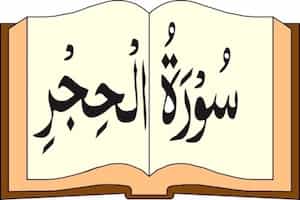 سُوْرَةُ الْحِجْرِ